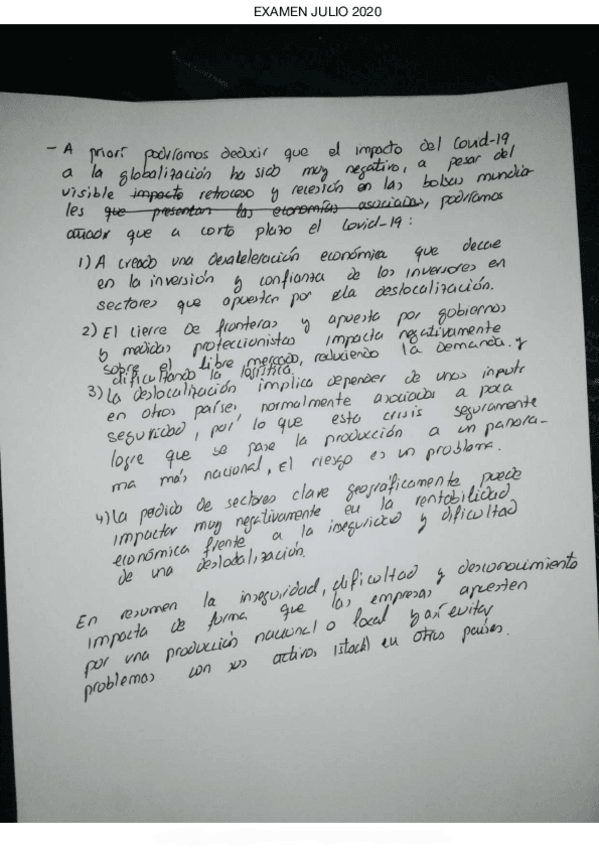 EXAMEN JULIO 2020
- A priori podríamos deducir que el impacto del Covid-19
a la globalización ha sido muy negativo, a pesar del
visible impacto retroceso y recesión en las bolsas mundia
les que presentan las economías asociadas, podríamos
añadir que a corto plazo el Covid-19:
1) A creado una desaleleración económica que decae
en la inversión y confianza de los inversores en
sectores que apuestan por la deslocalización.
2) El cierre de fronteras y apuesta por gobiernos
y medidas proteccionistas impacta negativamente
sobre el libre mercado, reduciendo la demanda. y
dificultando la logística.
3) La deslocalización implica depender de unos inputs
en otros países, normalmente asociados a poca
seguridad, por lo que esta crisis seguramente
logre que se pase la producción a un panora-
ma más nacional, el riesgo es un problema.
4) La perdida de sectores clave geográficamente puede
impactar muy negativamente en la rentabilidad
económica frente a la inseguridad y dificultad
de una deslocalización.
En resumen la inseguridad, dificultad y desconocimiento
impacta de forma que las empresas apuesten
por una producción nacional o local y así evitar
problemas con sus activos (stock) en otros países.